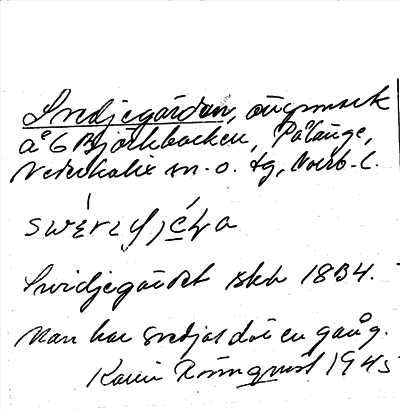 Svedjegården, ängsmark
å 6 Björkbacken, Pålänge,
Nederkalix sn. o. tg, Norrb. l.
Svidjegärdet skh 1834.
Man har svedjat där en gång.
Karin Rönnqvist 1945